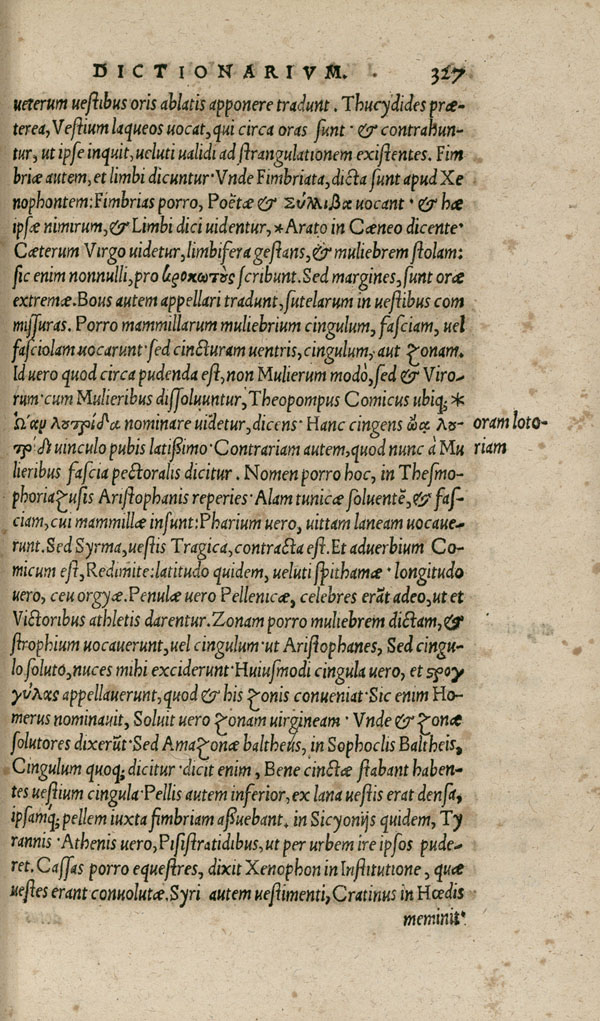 DICTIONARIVM. 327
ueterum uestibus oris ablatis apponere tradunt. Thucydides præ-
terea, Vestium laqueos uocat, qui circa oras sunt · & contrahun-
tur, ut ipse inquit, ueluti ualidi ad strangulationem existentes. Fim
briæ autem, et limbi dicuntur· Vnde Fimbriata, dicta sunt apud Xe
nophontem: Fimbrias porro, Poëtæ & Συλλιβα uocant · & hæ
ipsæ nimirum, & Limbi dici uidentur, *Arato in Cæneo dicente·
Cæterum Virgo uidetur, limbifera gestans, & muliebrem stolam:
sic enim nonnulli, pro scribunt. Sed margines, sunt oræ
extremæ. Bous autem appellari tradunt, sutelarum in uestibus com
missuras. Porro mammillarum muliebrium cingulum, fasciam, uel
fasciolam uocarunt· sed cincturam uentris, cingulum, aut zonam.
Id uero quod circa pudenda est, non Mulierum modò, sed & Viro-
rum· cum Mulieribus dissoluuntur, Theopompus Comicus ubiq; *
Ὠαρ λουτρίδα nominare uidetur, dicens· Hanc cingens ὤα λου-
τρίδι uinculo pubis latissimo· Contrariam autem, quod nunc à Mu
oram loto-
riam
lieribus fascia pectoralis dicitur. Nomen porro hoc, in Thesmo-
phoriazusis Aristophanis reperies· Alam tunicæ soluentē, & fas-
ciam, cui mammillæ insunt: Pharium uero, uittam laneam uocaue-
runt. Sed Syrma, uestis Tragica, contracta est. Et aduerbium Co-
micum est, Redimite: latitudo quidem, ueluti spithamæ · longitudo
uero, ceu orgyæ. Penulæ uero Pellenicæ, celebres erāt adeo, ut et
Victoribus athletis darentur. Zonam porro muliebrem dictam, &
strophium uocauerunt, uel cingulum· ut Aristophanes, Sed cingu-
lo soluto, nuces mihi exciderunt· Huiusmodi cingula uero, et στρογ
γύλας appellauerunt, quod & his zonis conueniat· Sic enim Ho-
merus nominauit, Soluit uero zonam uirgineam · Vnde & zonæ
solutores dixerūt· Sed Amazonæ baltheus, in Sophoclis Baltheis,
Cingulum quoq; dicitur· dicit enim, Bene cinctæ stabant haben-
tes uestium cingula· Pellis autem inferior, ex lana uestis erat densa,
ipsamq; pellem iuxta fimbriam assuebant. in Sicyonijs quidem, Ty
rannis· Athenis uero, Pisistratidibus, ut per urbem ire ipsos pude-
ret. Cassas porro equestres, dixit Xenophon in Institutione, quæ
uestes erant conuolutæ. Syri autem uestimenti, Cratinus in Hœdis
meminit·